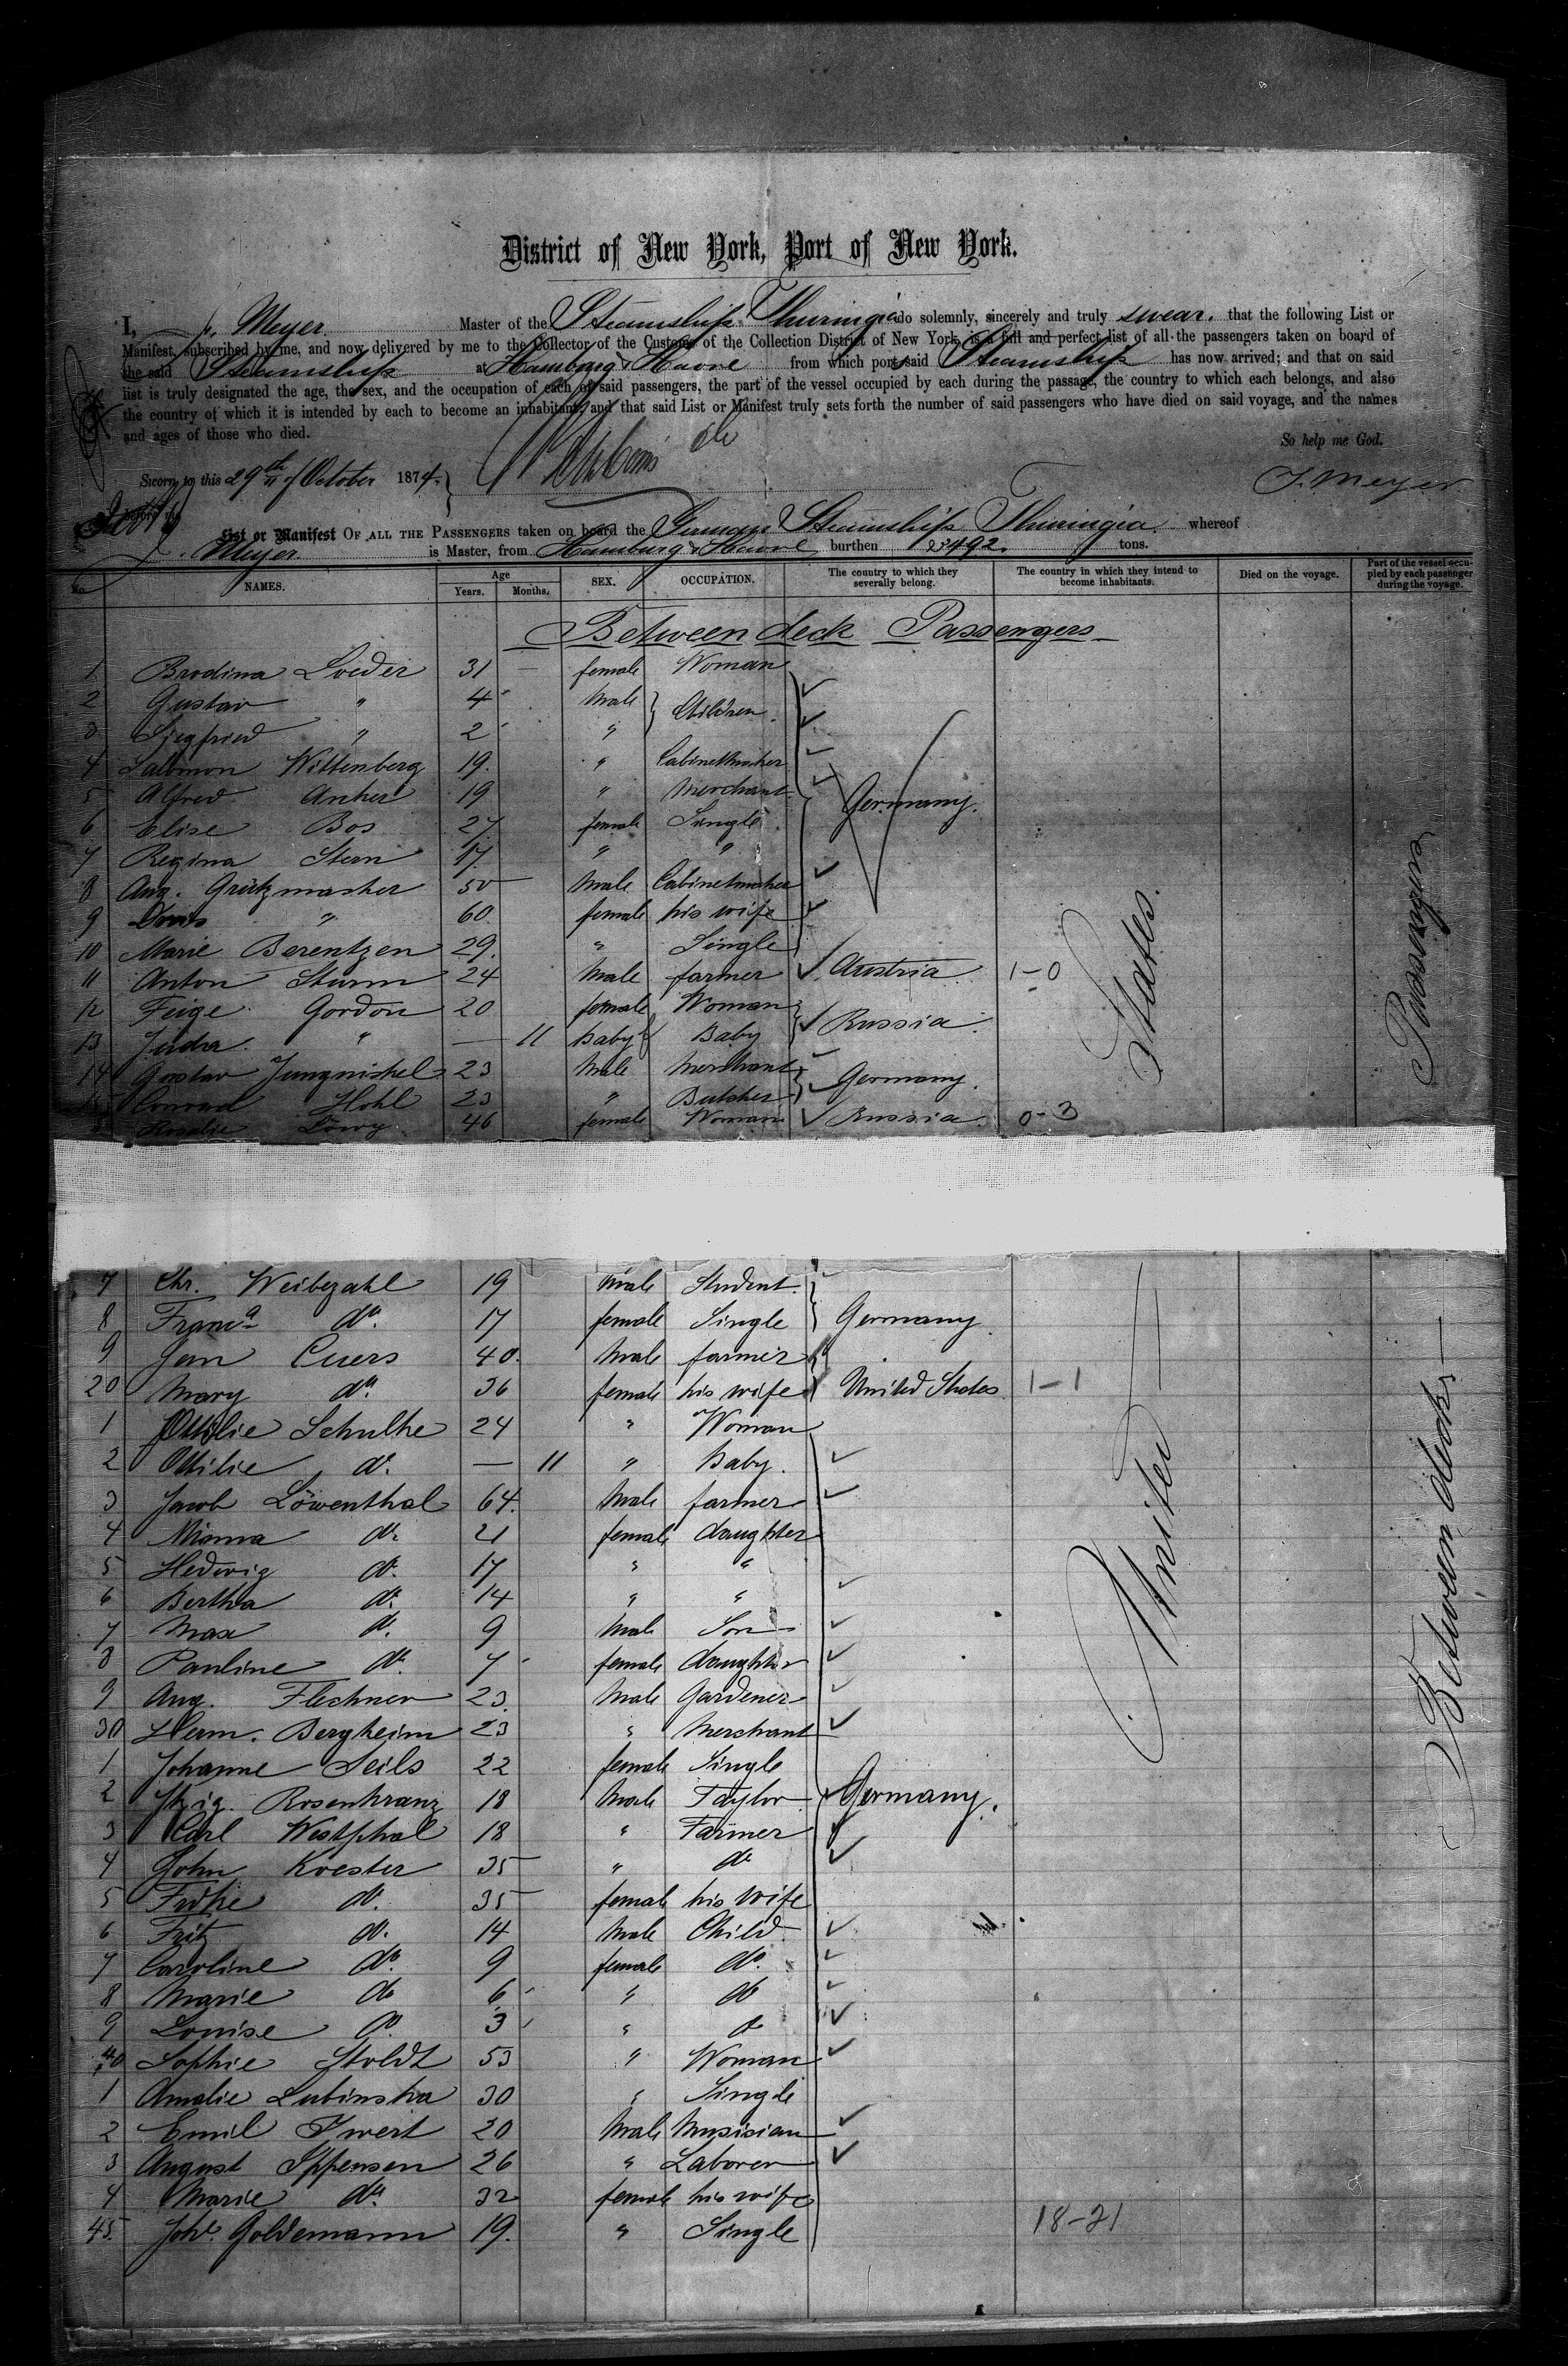 District of New York, Port of New York.
I, Meyer Master of the Steamship Thuringia do solemnly, sincerely and truly swear. that the following List or
Manifest, subscribed by me, and now delivered by me to the Collector of the Customs of the Collection District of New York, is a full and perfect list of all the passengers taken on board of
the said Steamship at Hamburg & Havre from which port said Steamship has now arrived; and that on said
list is truly designated the age, the sex, and the occupation of each of said passengers, the part of the vessel occupied by each during the passage, the country to which each belongs, and also
the country of which it is intended by each to become an inhabitant; and that said List or Manifest truly sets forth the number of said passengers who have died on said voyage, and the names
and ages of those who died.
So help me God.
Sworn to this 29th of October 1874.
J. Meyer
List or Manifest OF ALL THE PASSENGERS taken on board the German Steamship Thuringia whereof
Meyer is Master, from Hamburg & Havre burthen 3492. tons.
No. NAMES. Age Years. Months. SEX. OCCUPATION. The country to which they severally belong. The country in which they intend to become inhabitants. Died on the voyage. Part of the vessel occupied by each passenger during the voyage.
Between deck Passengers
1 Brodina Loeder 31 — female Woman
2 Gustav " 4 Male Children.
3 Siegfried " 2 "
4 Salomon Wittenberg 19. " Cabinetmaker
5 Alfred Anker 19 " Merchant Germany.
6 Elise Bos 27 female Single
7 Regina Stern 17 " "
8 Aug. Grützmacher 50 Male Cabinetmaker
9 Doris " 60 female his wife
10 Marie Berentzen 29. " Single
11 Anton Sturm 24 Male farmer Austria 1-0
12 Feige Gordon 20 female Woman Russia.
13 Juda " — 11 baby Baby
14 Gustav Jungnickel 23 Male Merchant Germany.
15 Conrad Hohl 23 " Butcher
Rosalie Löwy 46 female Woman Russia. 0-3
7 Chr. Weibezahl 19 Male Student
8 Franca do. 17 female Single Germany
9 Jan Cuers 40. Male farmer
20 Mary do. 36 female his wife United States 1-1
1 Ottilie Schulke 24 " Woman
2 Ottilie do. — 11 " Baby.
3 Jacob Löwenthal 64. Male farmer
4 Minna do. 21 female daughter
5 Hedwig do. 17 " "
6 Bertha do. 14 " "
7 Max do. 9 Male Son
8 Pauline do. 7 female daughter
9 Aug. Flechner 23. Male Gardener
30 Herm. Bergheim 23 " Merchant
1 Johanne Seils 22 female Single
2 Rosenkranz 18 Male Taylor Germany.
3 Carl Westphal 18 " Farmer
4 John Koester 35 " do
5 Frdke do. 35 female his wife
6 Fritz do. 14 Male Child
7 Caroline do. 9 female do.
8 Marie do 6 " do
9 Louise do 3 " do
40 Sophie Stoldt 53 " Woman
1 Amalie Lubinska 30 " Single
2 Emil Iwert 20 Male Musisian
3 August Ippensen 26 " Laborer
4 Marie do. 32 female his wife
45. Johe. Goldemann 19. " Single 18-21
United States.
Between deck Passengers